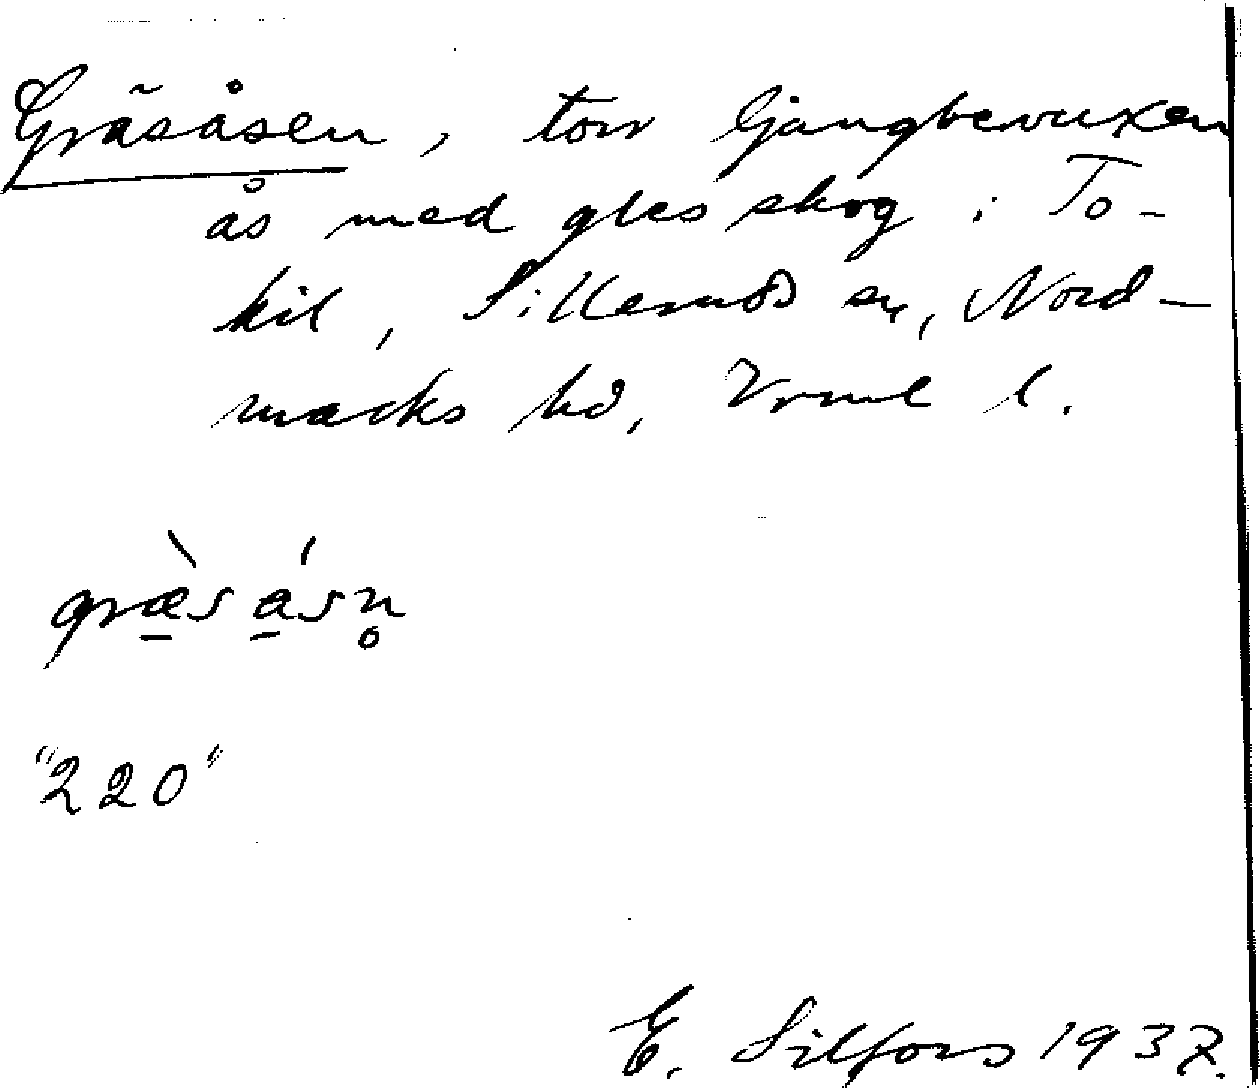 Gräsåsen, torr ljungbevuxen
ås med gles skog i To-
kil, Sillerud sn, Nord-
marks hd, Vrml l.
græs ɑsn̥
"220"
E. Silfors 1937.